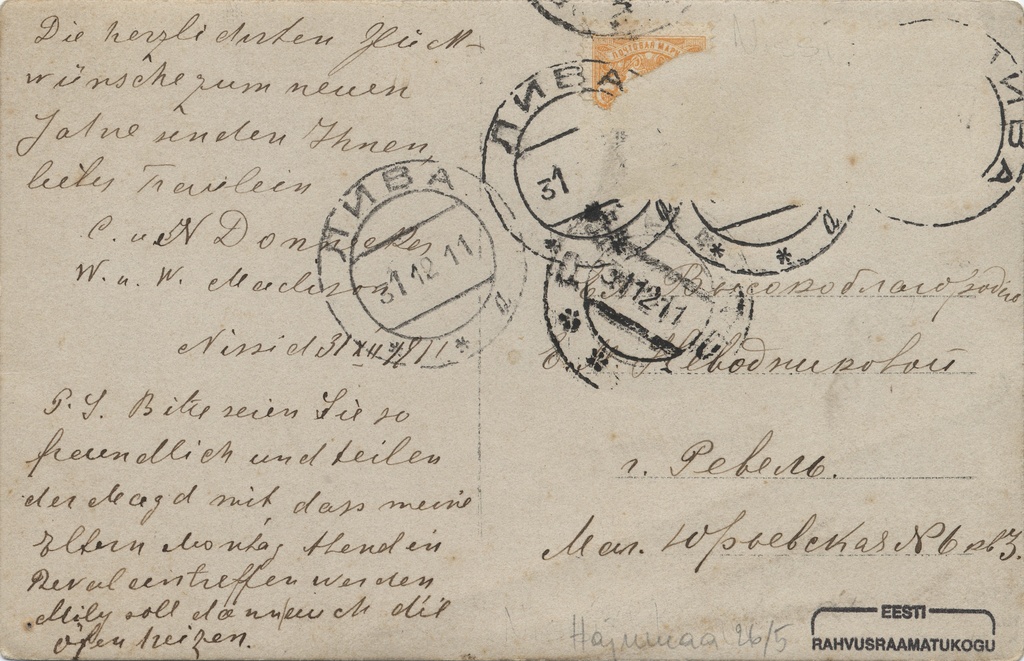 Die herzlichsten Glück-
wünsche zum neuen
Jahre senden Ihnen,
liebes Fräulein
C. u. N Donne
W. u. W. Madison
Nissi d 31 XII 1911
P. S. Bitte seien Sie so
freundlich und teilen
der Magd mit dass meine
Eltern Montag Abend in
Reval eintreffen werden
Mily soll dann auch die
Öfen heizen.
ПОЧТОВАЯ МАР
Nissi
ЛИВА
31
а
ЛИВА
а
ЛИВА
31 12 11
а
31 12 11
Е. Высокоблагородію
Е. Неводниковой
г. Ревель.
Мал. Юрьевская № 6 кв 3.
Harjumaa 26/5
EESTI
RAHVUSRAAMATUKOGU